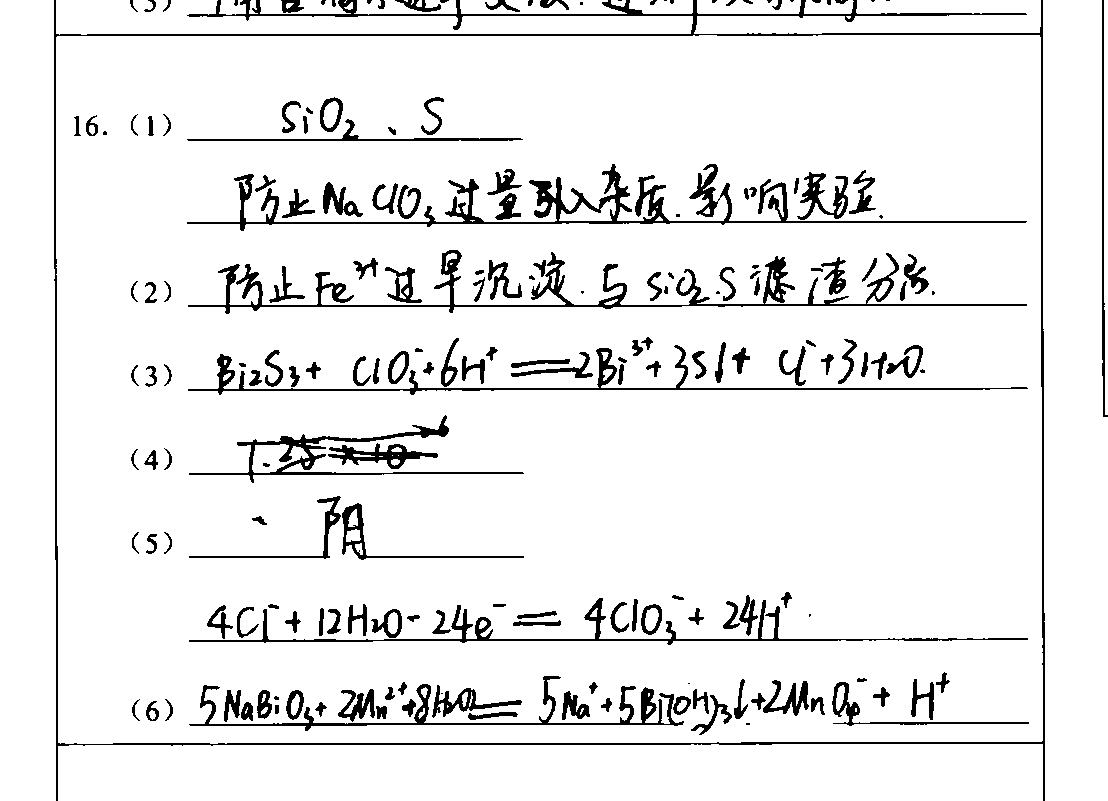 (3)
16.（1） SiO₂、S
防止NaClO₃过量引入杂质.影响实验.
（2）防止Fe³⁺过早沉淀.与SiO₂.S滤渣分离.
（3）Bi₂S₃+ ClO₃⁻+6H⁺══2Bi³⁺+3S↓+ Cl⁻+3H₂O.
（4）
（5）、阴
4Cl⁻+12H₂O-24e⁻══4ClO₃⁻+24H⁺
（6）5NaBiO₃+2Mn²⁺+8H₂O══5Na⁺+5Bi(OH)₃↓+2MnO₄⁻+ H⁺